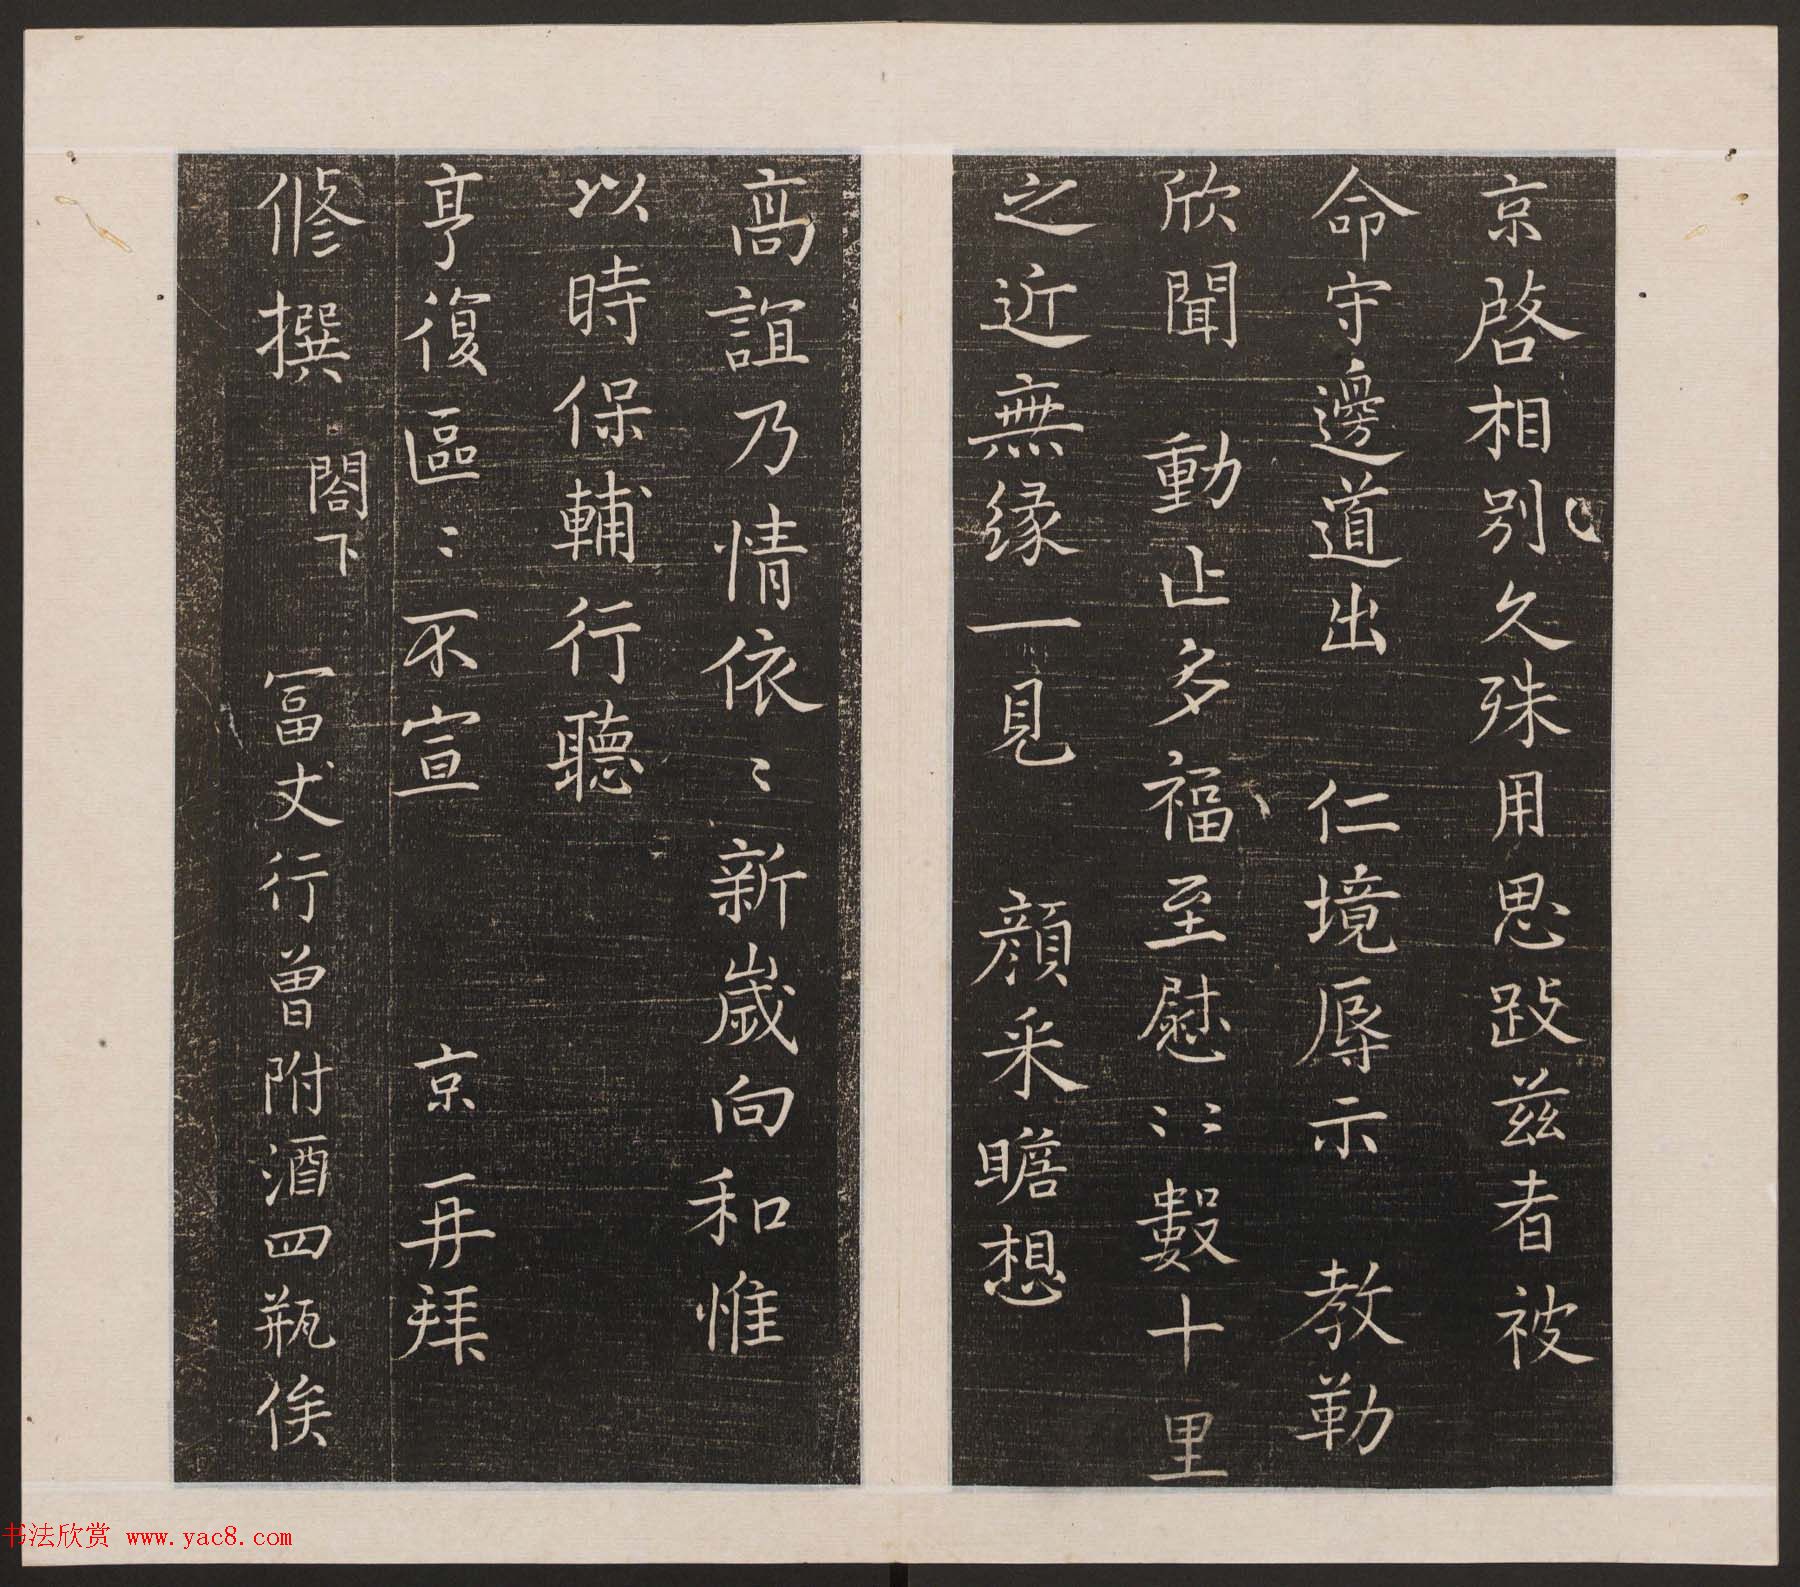 京啓相別久殊用思跂兹者被
命守邊道出　仁境辱示　教勒
欣聞　動止多福至慰〻〻數十里
之近無緣一見　顔采瞻想
高誼乃情依〻新歲向和惟
以時保輔行聽
亨復區〻不宣　京　再拜
修撰　閤下
冨丈行曾附酒四瓶俟
书法欣赏 www.yac8.com